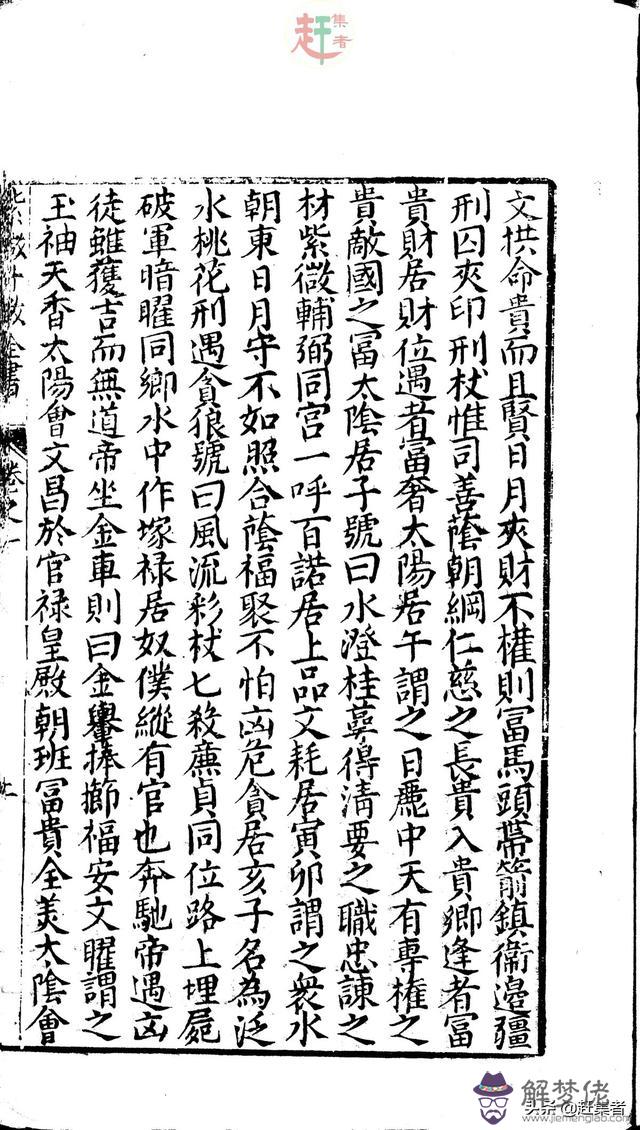 赶集者
文拱命貴而且賢日月夾財不權則冨馬頭帶箭鎮衛邉疆
刑囚夾印刑杖惟司善蔭朝綱仁慈之長貴入貴鄉逢者冨
貴財居財位遇者富奢太陽居午謂之日麗中天有專權之
貴敵國之冨太陰居子號曰水澄桂萼得清要之職忠諫之
材紫微輔弼同宫一呼百諾居上品文耗居寅卯謂之衆水
朝東日月守不如照合蔭福聚不怕凶危貪居亥子名為泛
水桃花刑遇貪狼號曰風流彩杖七殺廉貞同位路上埋屍
破軍暗曜同鄉水中作塚禄居奴僕縱有官也奔馳帝遇凶
徒雖獲吉而無道帝坐金車則曰金轝捧櫛福安文曜謂之
玉袖天香太陽會文昌於官禄皇殿朝班冨貴全美太陰會
全書
卷之一
解梦佬
www.jiemenglab.com
头条 @赶集者